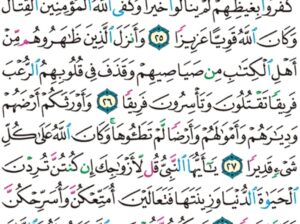 كَفَرُوا۟ بِغَيْظِهِمْ لَمْ يَنَالُوا۟ خَيْرًۭا ۚ وَكَفَى ٱللَّهُ ٱلْمُؤْمِنِينَ ٱلْقِتَالَ ۚ
وَكَانَ ٱللَّهُ قَوِيًّا عَزِيزًۭا ٢٥ وَأَنزَلَ ٱلَّذِينَ ظَـٰهَرُوهُم مِّنْ
أَهْلِ ٱلْكِتَـٰبِ مِن صَيَاصِيهِمْ وَقَذَفَ فِى قُلُوبِهِمُ ٱلرُّعْبَ
فَرِيقًۭا تَقْتُلُونَ وَتَأْسِرُونَ فَرِيقًۭا ٢٦ وَأَوْرَثَكُمْ أَرْضَهُمْ
وَدِيَـٰرَهُمْ وَأَمْوَٰلَهُمْ وَأَرْضًۭا لَّمْ تَطَـُٔوهَا ۚ وَكَانَ ٱللَّهُ عَلَىٰ كُلِّ
شَىْءٍۢ قَدِيرًۭا ٢٧ يَـٰٓأَيُّهَا ٱلنَّبِىُّ قُل لِّأَزْوَٰجِكَ إِن كُنتُنَّ تُرِدْنَ
ٱلْحَيَوٰةَ ٱلدُّنْيَا وَزِينَتَهَا فَتَعَالَيْنَ أُمَتِّعْكُنَّ وَأُسَرِّحْكُنَّ